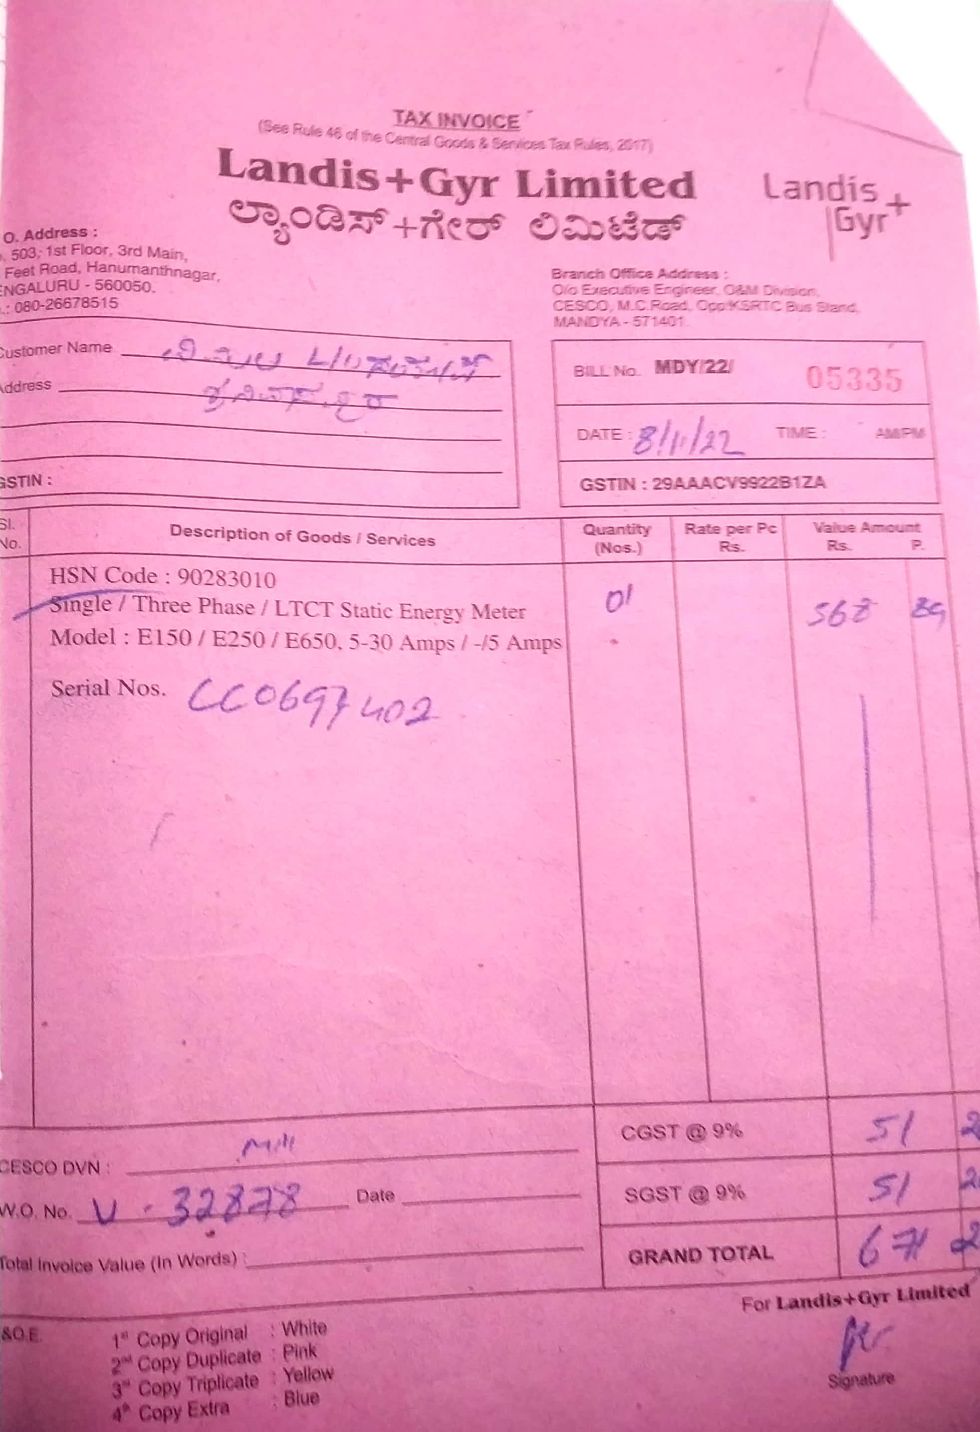 TAX INVOICE
(See Rule 46 of the Central Goods & Services Tax Rules, 2017)
Landis+Gyr Limited
ಲ್ಯಾಂಡಿಸ್+ಗೇರ್ ಲಿಮಿಟೆಡ್
Landis
Gyr+
O. Address :
503, 1st Floor, 3rd Main,
Feet Road, Hanumanthnagar,
ENGALURU - 560050.
.: 080-26678515
Branch Office Address :
O/o Executive Engineer, O&M Division,
CESCO, M.C.Road, Opp:KSRTC Bus Stand,
MANDYA - 571401.
Customer Name
Address
GSTIN :
BILL No. MDY/22/ 05335
DATE : 8/11/22 TIME : AM/PM
GSTIN : 29AAACV9922B1ZA
Sl. No. Description of Goods / Services Quantity (Nos.) Rate per Pc Rs. Value Amount Rs. P.
HSN Code : 90283010
Single / Three Phase / LTCT Static Energy Meter 01 568 89
Model : E150 / E250 / E650, 5-30 Amps / -/5 Amps
Serial Nos. CC0697402
CGST @ 9% 51 2
CESCO DVN :
SGST @ 9% 51 2
W.O. No. V - 32878 Date
GRAND TOTAL 671 2
Total Invoice Value (In Words) :
For Landis+Gyr Limited
&O.E.
1st Copy Original : White
2nd Copy Duplicate : Pink
3rd Copy Triplicate : Yellow
4th Copy Extra : Blue
Signature